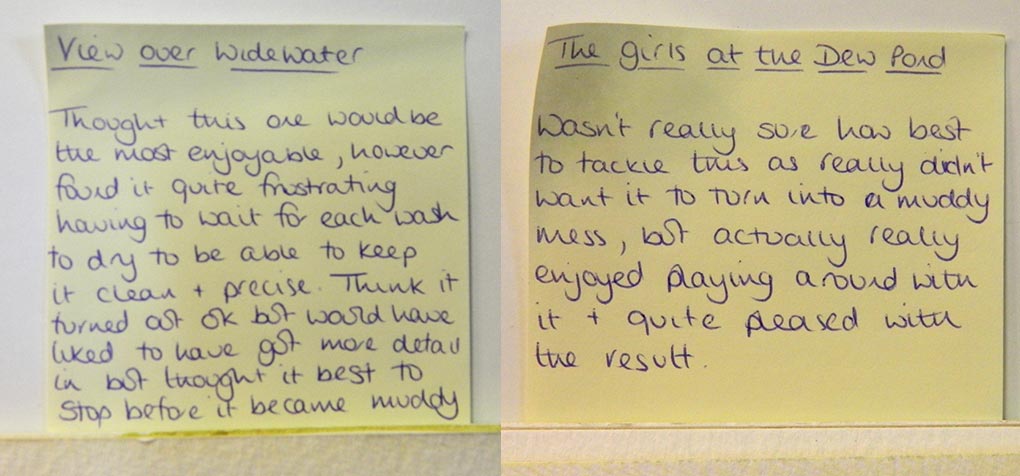 View over Widewater
Thought this one would be
the most enjoyable, however
found it quite frustrating
having to wait for each wash
to dry to be able to keep
it clean + precise. Think it
turned out ok but would have
liked to have got more detail
in but thought it best to
stop before it became muddy
The girls at the Dew Pond
Wasn't really sure how best
to tackle this as really didn't
want it to turn into a muddy
mess, but actually really
enjoyed playing around with
it + quite pleased with
the result.